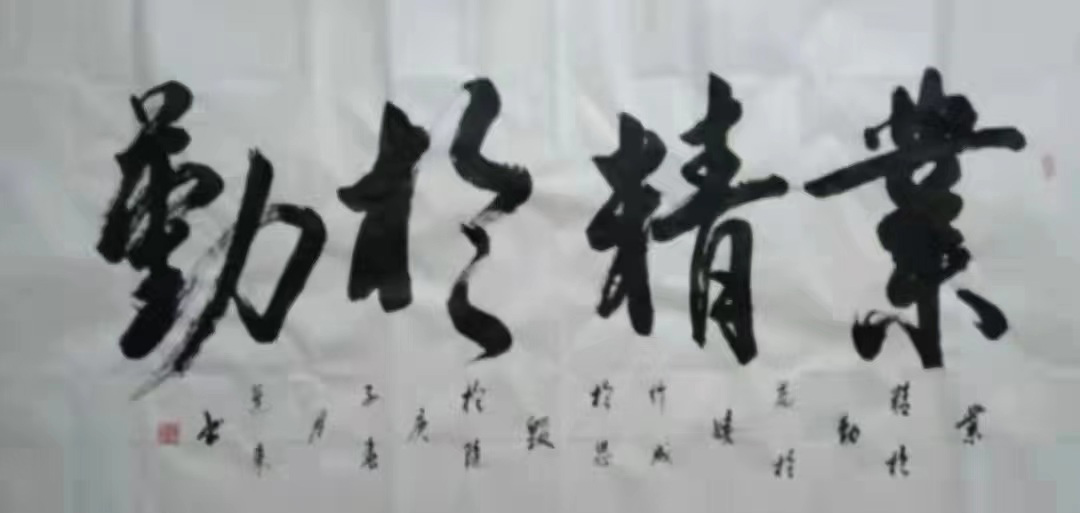 業精於勤
業精於勤荒於嬉行成於思毀於隨庚子春月書